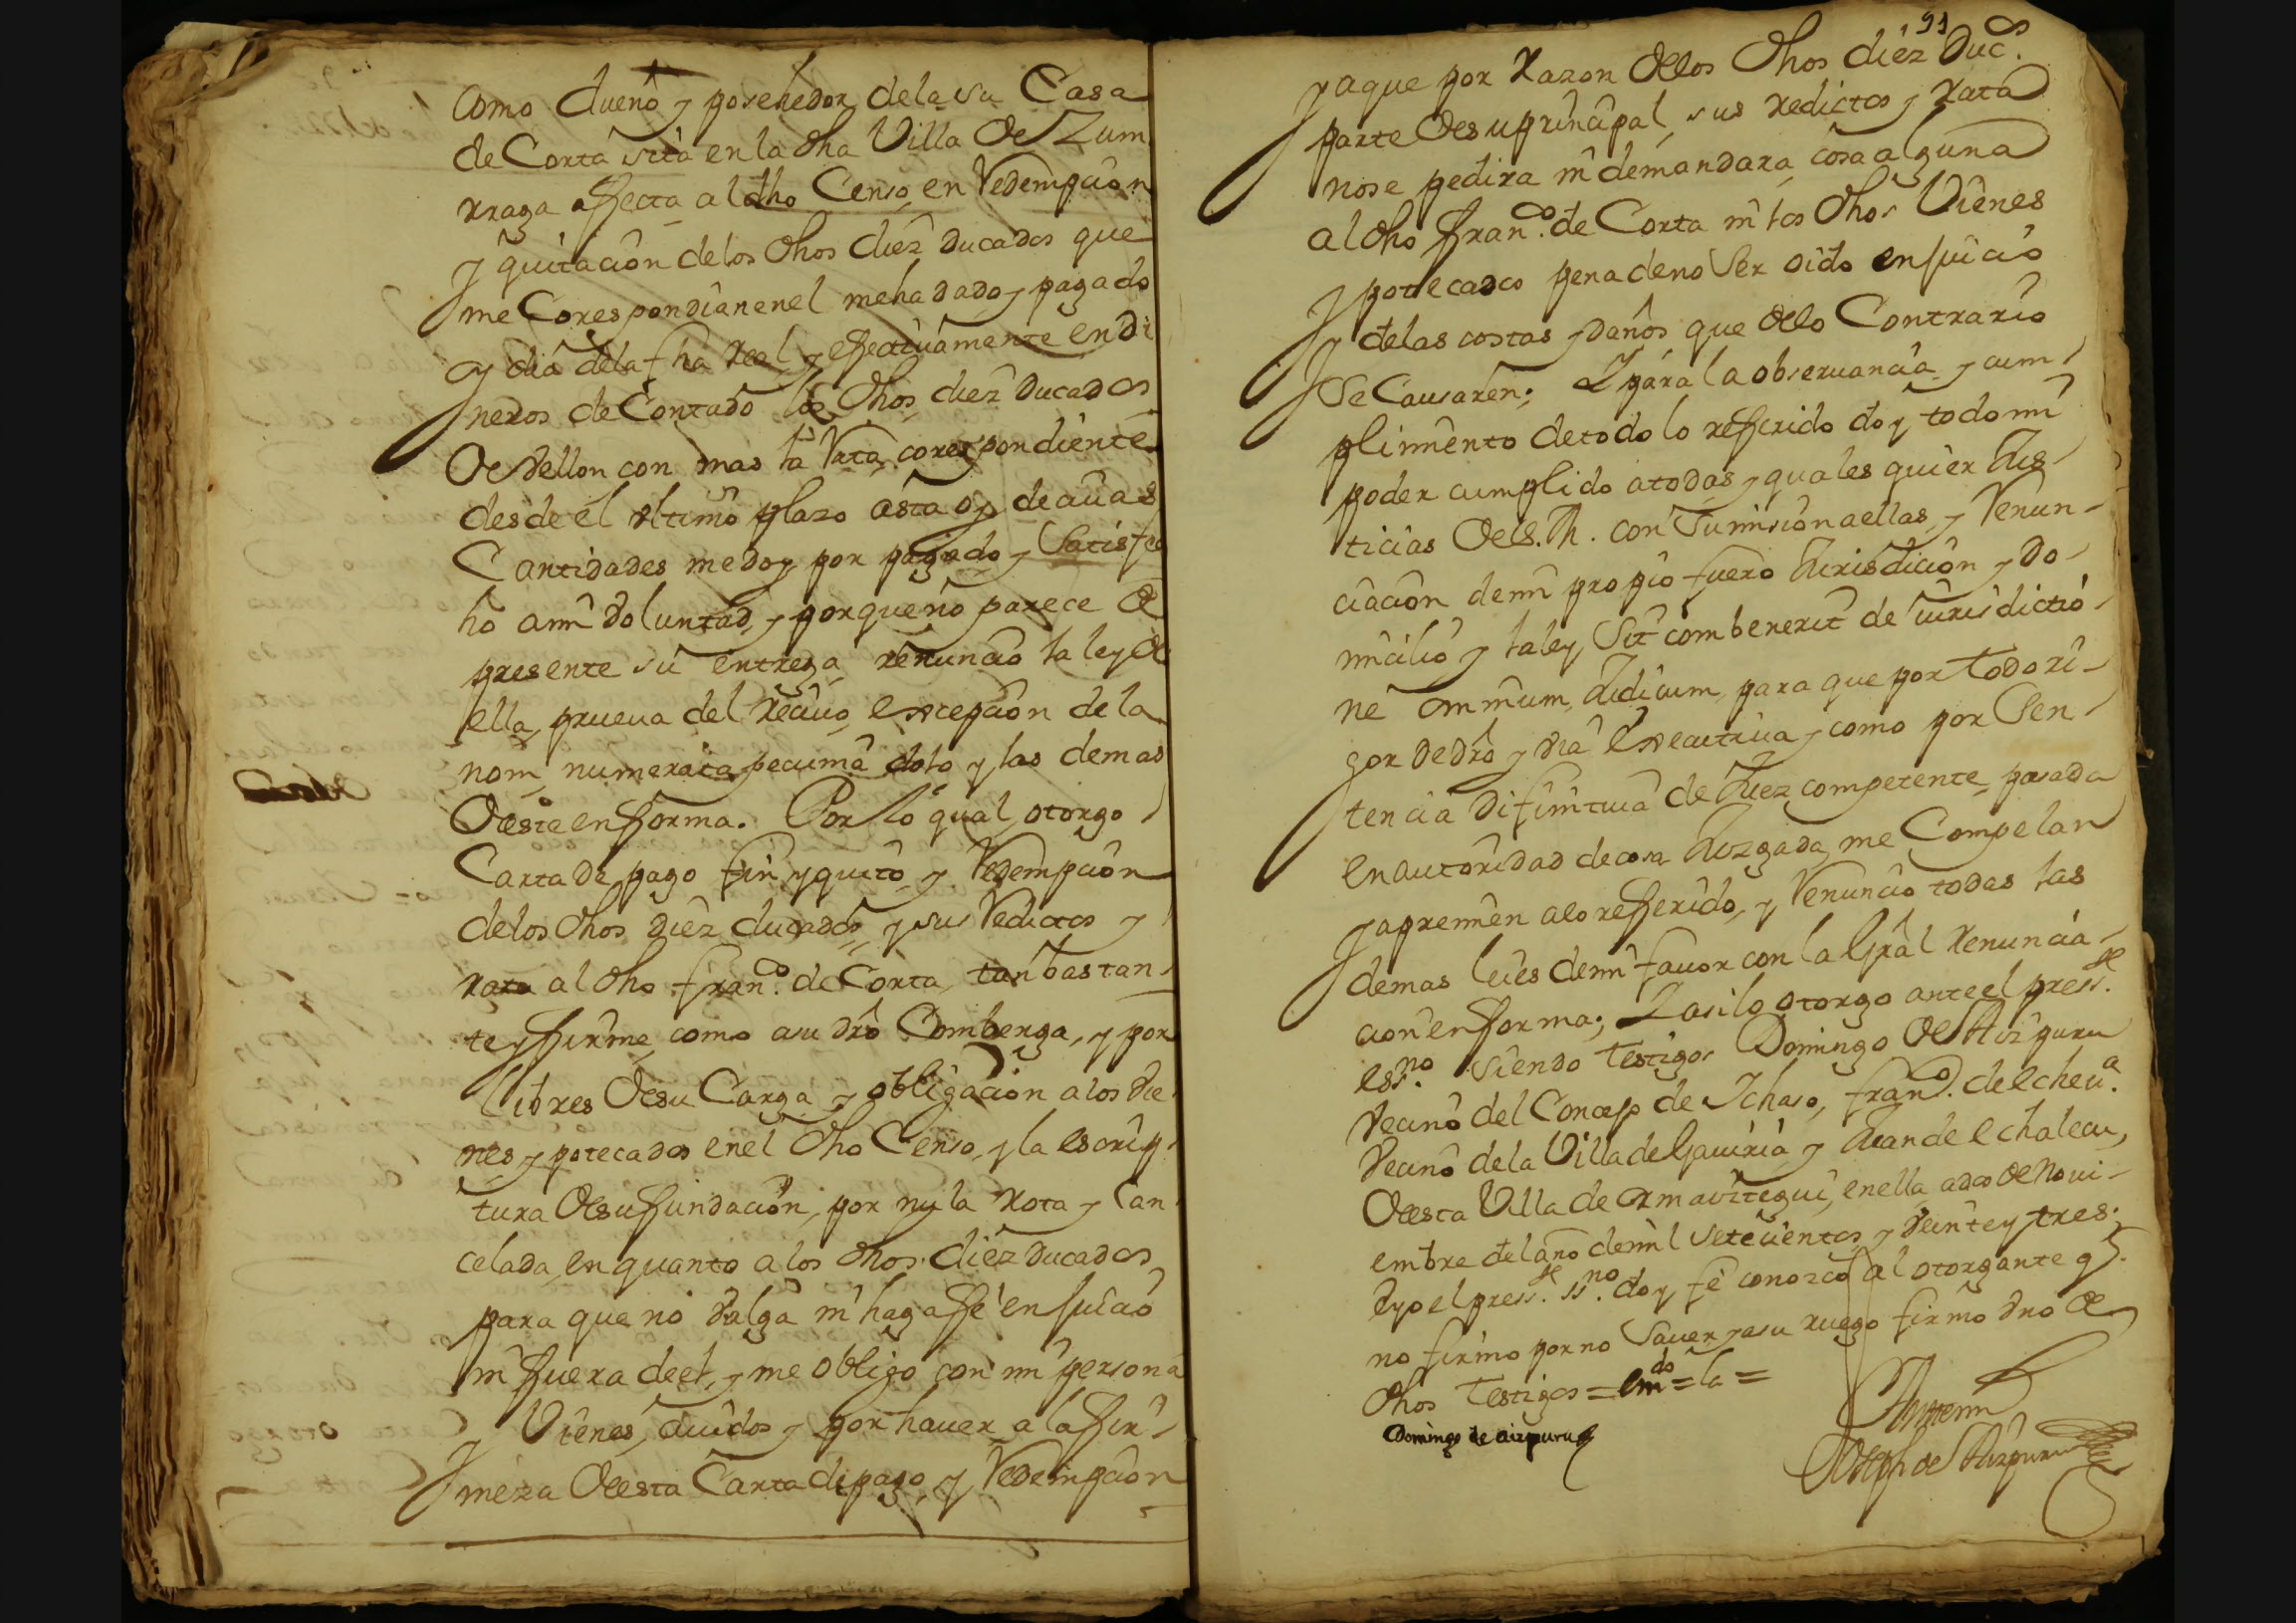 Como dueño y posehedor de la su Casa
de Corta sita en la dha Villa de Zum
rraga afecta al dho Censo, en Redempcion
y quitacion de los dhos diez ducados que
me Corespondian en el me ha dado y pagado
oy dia de la fha Real y efectiuamente en di
neros de Contado los dhos diez ducados
de vellon con mas la Rata corespondiente
desde el vltimo plazo asta oy de cuias
Cantidades me doy por pagado y Satisfe
ho a mi voluntad, y porque no parece de
presente su entrega renuncio la ley de
ella, prueua del reciuo, excepcion de la
nom numerata pecunia dolo y las demas
de este en forma. Por lo qual otorgo
Carta de pago fin y quito y Redempcion
de los dhos diez ducados, y sus Redictos y
rata al dho Franco. de Corta, tan bastan-
te y firme como a su dro Combenga, y por
libres de su Carga y obligacion a los vie
nes ypotecados en el dho Censo, y la escrip
tura de su fundacion, por nula rota y Can
celada, en quanto a los dhos diez ducados,
para que no valga ni haga ffe en juicio
ni fuera de el, y me obligo con mi persona
y Vienes, auidos y por hauer, a la fir-
meza de esta Carta de pago, y Redempcion
91
y a que por Razon de los dhos diez Ducos.
parte de su principal, sus redictos y rata
no se pedira ni demandara, cosa alguna
al dho Franco. de Corta ni los dhos Vienes
ypotecados pena de no Ser oido en juicio
y de las costas y daños que de lo Contrario
Se Causaren; Y para la obseruancia y cum-
plimiento de todo lo refferido doy todo mi
poder cumplido a todas y quales quier Jus-
ticias de S. M. con Sumision a ellas, y Renun-
ciacion de mi propio fuero Jurisdicion y do-
micilio y la ley Sit combenerit de iurisdictio-
ne ommium Judicum, para que por todo ri-
gor de dro y via executiua y como por Sen-
tencia difinitiua de Juez competente, pasada
en autoridad de cosa Juzgada, me Compelan
y apremien a lo refferido, y Renuncio todas las
demas leies de mi fauor con la Gral Renuncia-
cion en forma; Y asi lo otorgo ante el presste.
essno. siendo testigos Domingo de Aizpuru
Vecino del Concejo de Ichaso, Franco. de Echeua.
Vecino de la Villa de Gauiria y Juan de Echalecu,
de esta Villa de Ormaiztegui, en ella, a dos de Noui-
embre del año de mil setecientos y veinte y tres:
e yo el presste. ssno. doy fe conozco al otorgante q.
no firmo por no Sauer, y a su ruego firmo vno de
dhos testigos = emdo = la =
Domingo de aizpuru
Ante mi
Joseph de Aizpuru